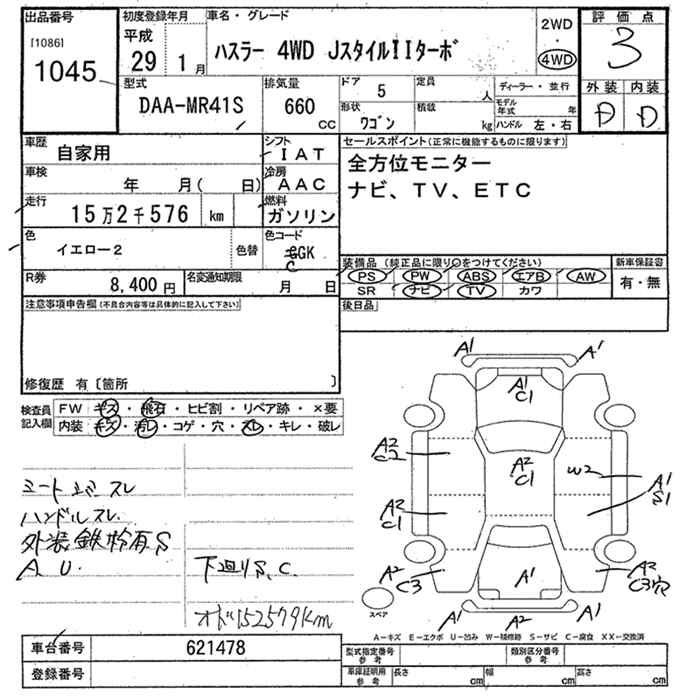 出品番号
[1086]
1045
初度登録年月
平成
29 1月
車名・グレード
ハスラー 4WD JスタイルIIターボ
2WD
・
4WD
評価点
3
外装 内装
D D
型式
DAA-MR41S
排気量
660
CC
ドア
5
定員
人
形状
ワゴン
積載
kg
ディーラー・並行
モデル年式 年
ハンドル 左・右
車歴
自家用
車検
年 月( 日)
走行
15万2千576 km
色
イエロー2
色替
R券
8,400 円
シフト
IAT
冷房
AAC
燃料
ガソリン
色コード
GK
C
名変通知期限
月 日
セールスポイント(正常に機能するものに限ります)
全方位モニター
ナビ、TV、ETC
装備品(純正品に限り○をつけてください)
PS PW ABS エアB AW
SR ナビ TV カワ
新車保証書
有・無
後日品
注意事項申告欄(不具合内容等は具体的に記入して下さい)
修復歴 有〔箇所 〕
検査員記入欄
FW キズ・飛石・ヒビ割・リペア跡・×要
内装 キズ・汚レ・コゲ・穴・スレ・キレ・破レ
シートヨゴレ スレ
ハンドルスレ.
外装鉄粉有.S
A U.
下廻りS、C.
オド152579km
A1
A1
A1
C1
A2
C2
A2
C1
W2
A1
S1
A2
C1
A2
C3
A1
A2
C3穴
A1
A2
A1
スペア
A−キズ E−エクボ U−凹み W−補修跡 S−サビ C−腐食 XX−交換済
車台番号
621478
登録番号
型式指定番号
参考
類別区分番号
参考
車庫証明用
参考
長さ cm
幅 cm
高さ cm